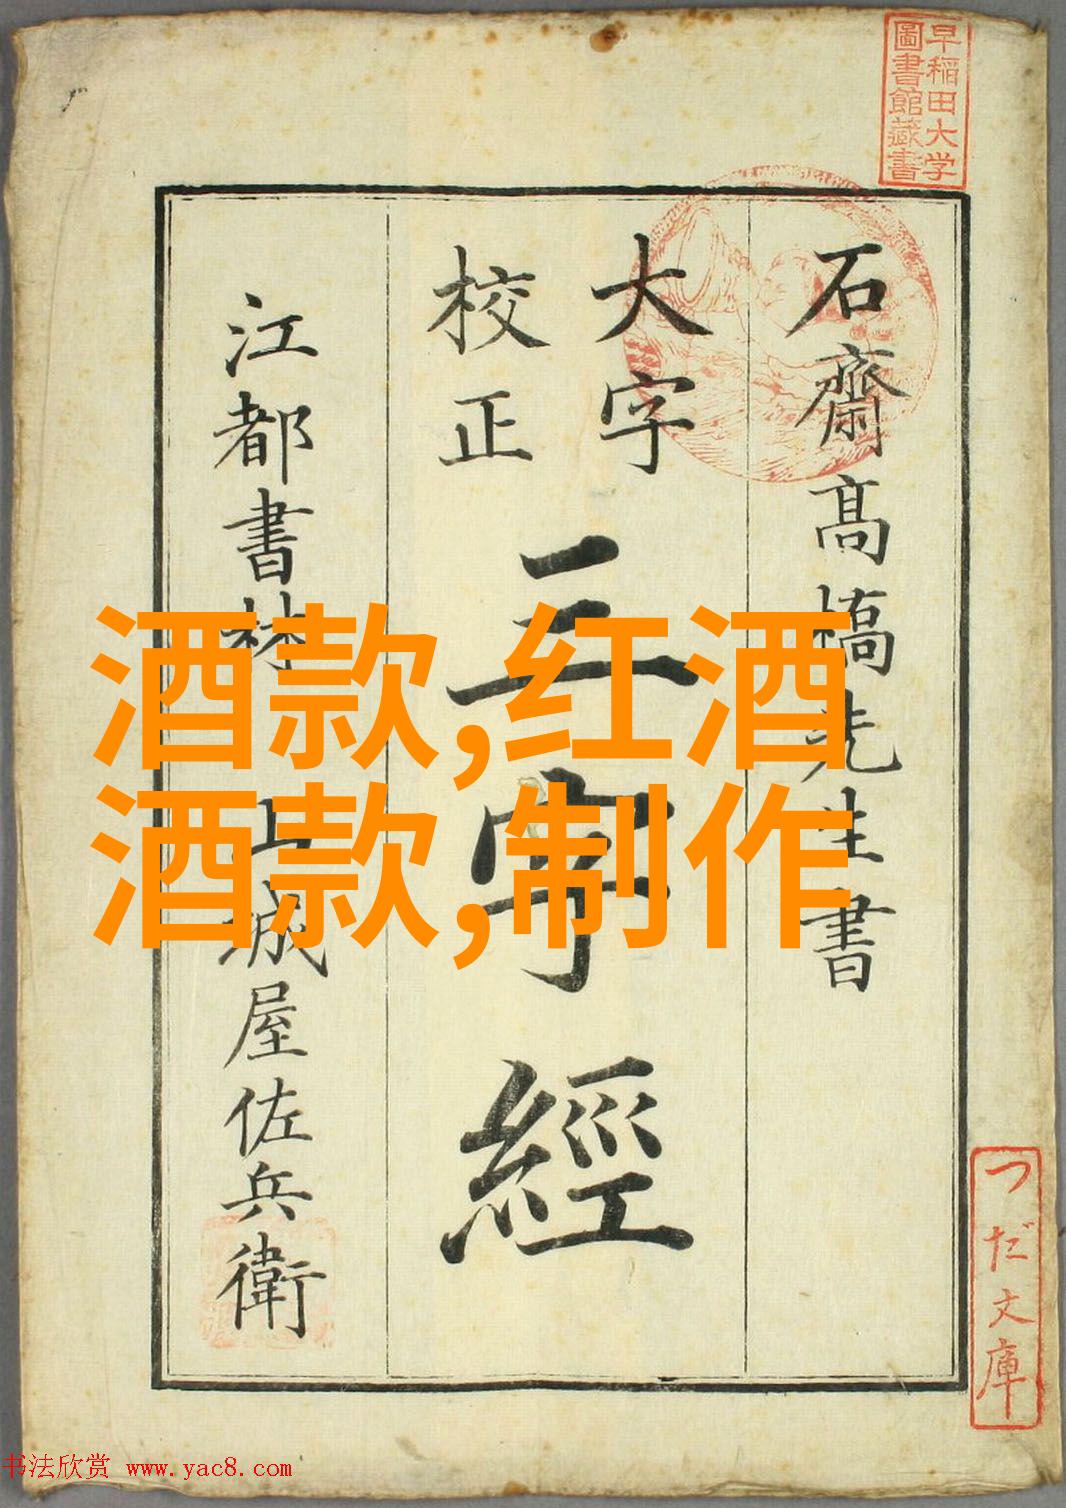 早稲田大学
圖書館藏書
石齋髙橋先生書
大字
校正
三字經
江都書林 山城屋佐兵衛
酒款,红酒
酒款,制作
つだ文庫
书法欣赏 www.yac8.com